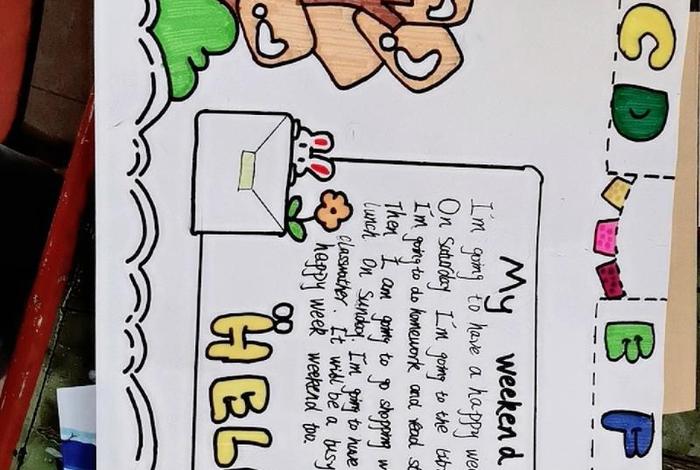 C D E F
My weekend
I'm going to have a happy
On Saturday I'm going to the
I'm going to do homework and read
Then I am going to go shopping
lunch On Sunday I'm going to have
It will be a busy
happy week weekend too.
HEL